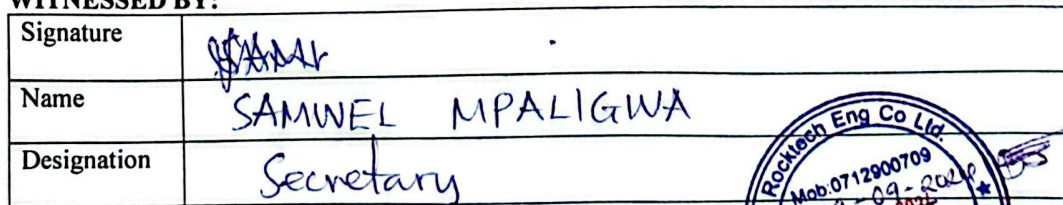 WITNESSED BY:
Signature
Name SAMWEL MPALIGWA
Designation Secretary
Rocktech Eng Co Ltd.
Mob:0712900709